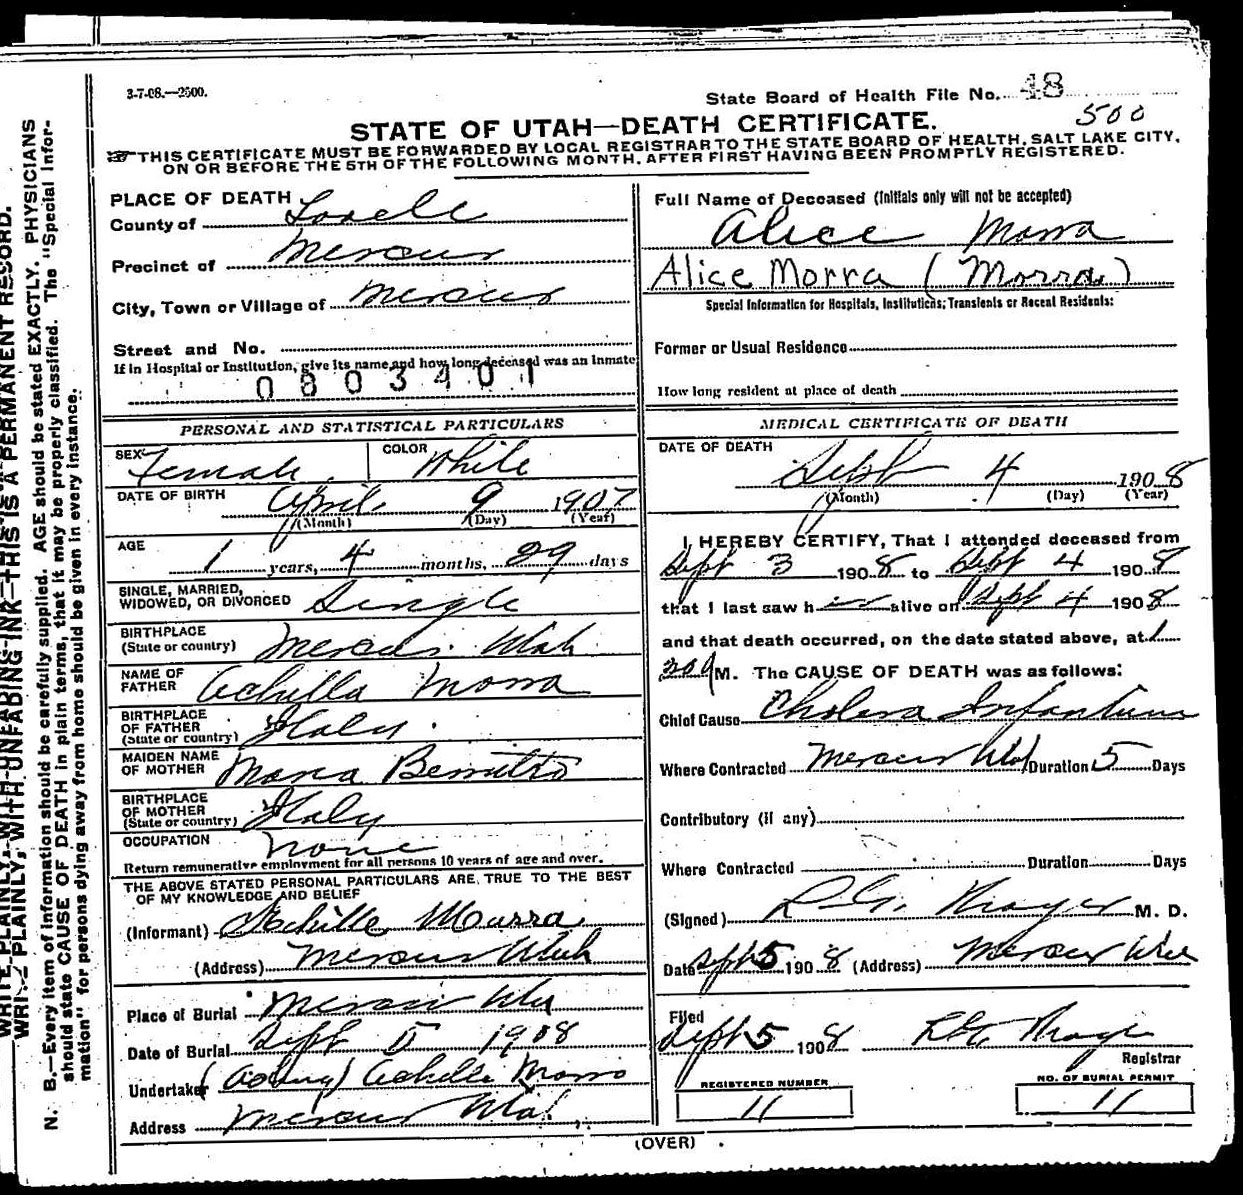 3-7-08.—2500.
State Board of Health File No. 48
500
STATE OF UTAH—DEATH CERTIFICATE.
THIS CERTIFICATE MUST BE FORWARDED BY LOCAL REGISTRAR TO THE STATE BOARD OF HEALTH, SALT LAKE CITY,
ON OR BEFORE THE 5TH OF THE FOLLOWING MONTH, AFTER FIRST HAVING BEEN PROMPTLY REGISTERED.
PLACE OF DEATH
County of Tooele
Precinct of Mercur
City, Town or Village of Mercur
Street and No.
If in Hospital or Institution, give its name and how long deceased was an inmate
0803401
Full Name of Deceased (Initials only will not be accepted)
Alice Morra
Alice Morra (Morra)
Special Information for Hospitals, Institutions, Transients or Recent Residents:
Former or Usual Residence
How long resident at place of death
PERSONAL AND STATISTICAL PARTICULARS
SEX Female COLOR White
DATE OF BIRTH April 9 1907
(Month) (Day) (Year)
AGE 1 years, 4 months, 29 days
SINGLE, MARRIED,
WIDOWED, OR DIVORCED Single
BIRTHPLACE
(State or country) Mercur Utah
NAME OF
FATHER Achilla Morra
BIRTHPLACE
OF FATHER
(State or country) Italy
MAIDEN NAME
OF MOTHER Maria
BIRTHPLACE
OF MOTHER
(State or country) Italy
OCCUPATION None
Return remunerative employment for all persons 10 years of age and over.
THE ABOVE STATED PERSONAL PARTICULARS ARE TRUE TO THE BEST
OF MY KNOWLEDGE AND BELIEF
(Informant) Achille Murra
(Address) Mercur Utah
Place of Burial Mercur Utah
Date of Burial Sept 5 1908
Undertaker (Acting) Achille Morra
Address Mercur Utah
MEDICAL CERTIFICATE OF DEATH
DATE OF DEATH
Sept 4 1908
(Month) (Day) (Year)
I HEREBY CERTIFY, That I attended deceased from
Sept 3 1908 to Sept 4 1908
that I last saw her alive on Sept 4 1908
and that death occurred, on the date stated above, at 1
M. The CAUSE OF DEATH was as follows:
Chief Cause Cholera Infantum
Where Contracted Mercur Utah Duration 5 Days
Contributory (if any)
Where Contracted Duration Days
(Signed) M. D.
Date Sept 5 1908 (Address) Mercur Utah
Filed
Sept 5 1908
Registrar
REGISTERED NUMBER
11
NO. OF BURIAL PERMIT
11
(OVER)
WRITE PLAINLY, WITH UNFADING INK—THIS IS A PERMANENT RECORD.
N. B.—Every item of information should be carefully supplied. AGE should be stated EXACTLY. PHYSICIANS
should state CAUSE OF DEATH in plain terms, that it may be properly classified. The "Special Infor-
mation" for persons dying away from home should be given in every instance.